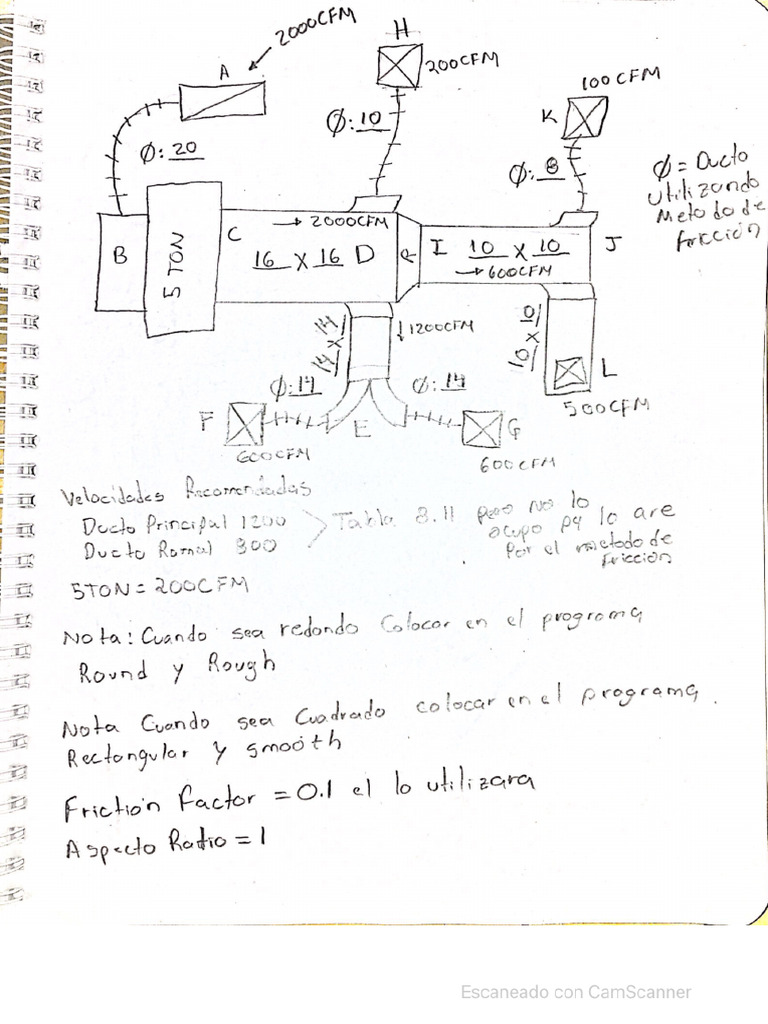 2000CFM
A
H
200CFM
100 CFM
K
Ø: 20
Ø: 10
Ø: 8
Ø = Ducto
utilizando
Metodo de
friccion
B
5 TON
C
→ 2000CFM
16 X 16 D
R
I 10 X 10
→ 600CFM
J
14 X 14
↓ 1200CFM
10 X 10
L
500CFM
Ø: 14
Ø: 14
F
E
G
600CFM
600CFM
Velocidades Recomendadas
Ducto Principal 1200
Ducto Ramal 900
Tabla 8.11 pero No lo
ocupo pq lo are
Por el metodo de
friccion
5TON = 200CFM
Nota: Cuando sea redondo Colocar en el programa
Round y Rough
Nota Cuando sea Cuadrado colocar en el programa.
Rectangular y smooth
Friction factor = 0.1 el lo utilizara
Aspecto Ratio = 1
Escaneado con CamScanner